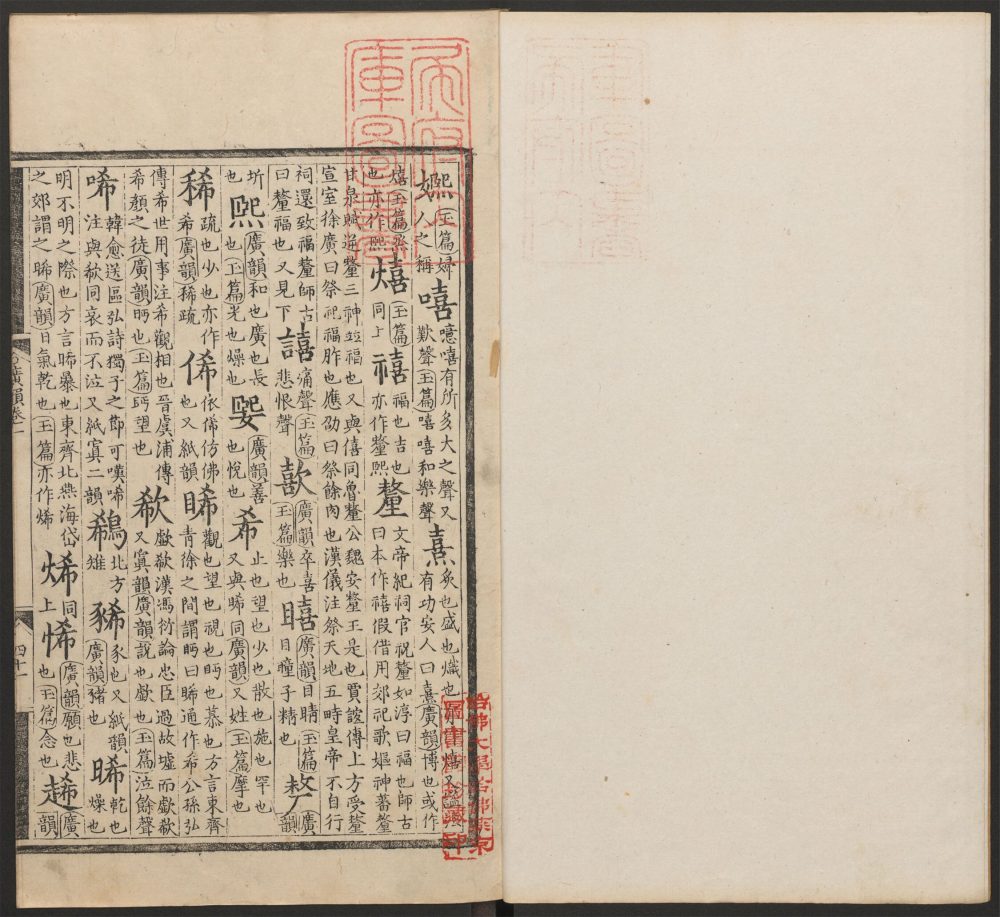 媐玉篇婦人之稱嘻噫嘻有所多大之聲又歎聲玉篇嘻嘻和樂聲熹炙也盛也熾也有功安人曰熹廣韻博也或作
熺玉篇烝也亦作熙熺玉篇同上禧福也吉也亦作釐熙釐文帝紀祠官祝釐如淳曰福也師古曰本作禧假借用郊祀歌媼神蕃釐
甘泉賦逆釐三神竝福也又與僖同魯釐公魏安釐王是也賈誼傳上方受釐宣室徐廣曰祭祀福胙也應劭曰祭餘肉也漢儀注祭天地五畤皇帝不自行
祠還致福釐師古曰釐福也又見下譆痛聲玉篇悲恨聲歖廣韻卒喜玉篇樂也廣韻目睛玉篇目瞳子精也廣韻
坼也熙廣韻和也廣也長也玉篇光也燥也廣韻善也悅也希止也望也少也散也施也罕也又與晞同廣韻又姓玉篇摩也
稀疏也少也亦作希廣韻稀疏俙依俙仿佛也又紙韻睎觀也望也視也眄也慕也方言東齊青徐之間謂眄曰睎通作希公孫弘
傳希世用事注希觀相也晉虞浦傳希顏之徒廣韻眄也玉篇眄望也欷歔欷漢馮衍論忠臣過故墟而歔欷又寘韻廣韻說也歔也玉篇泣餘聲
唏韓愈送區弘詩獨子之節可嘆唏注與欷同哀而不泣又紙寘二韻鵗北方雉豨豕也又紙韻廣韻豬也晞乾也燥也
明不明之際也方言晞暴也東齊北燕海岱之郊謂之晞廣韻日氣乾也玉篇亦作烯烯同上悕廣韻願也悲也玉篇念也廣韻
廣韻卷一
四十一